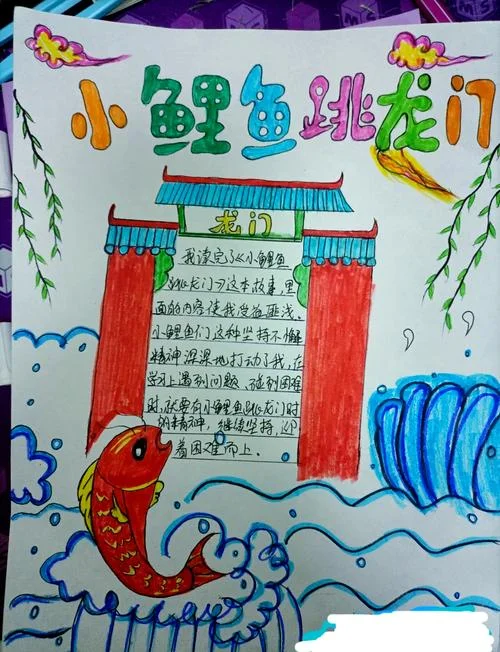 小鲤鱼跳龙门
龙门
我读完了《小鲤鱼
跳龙门》这本故事,里
面的内容使我受益匪浅。
小鲤鱼们这种坚持不懈
精神深深地打动了我,在
学习上遇到问题、碰到困难
时,就要有小鲤鱼跳龙门时
的精神,继续坚持,迎
着困难而上。